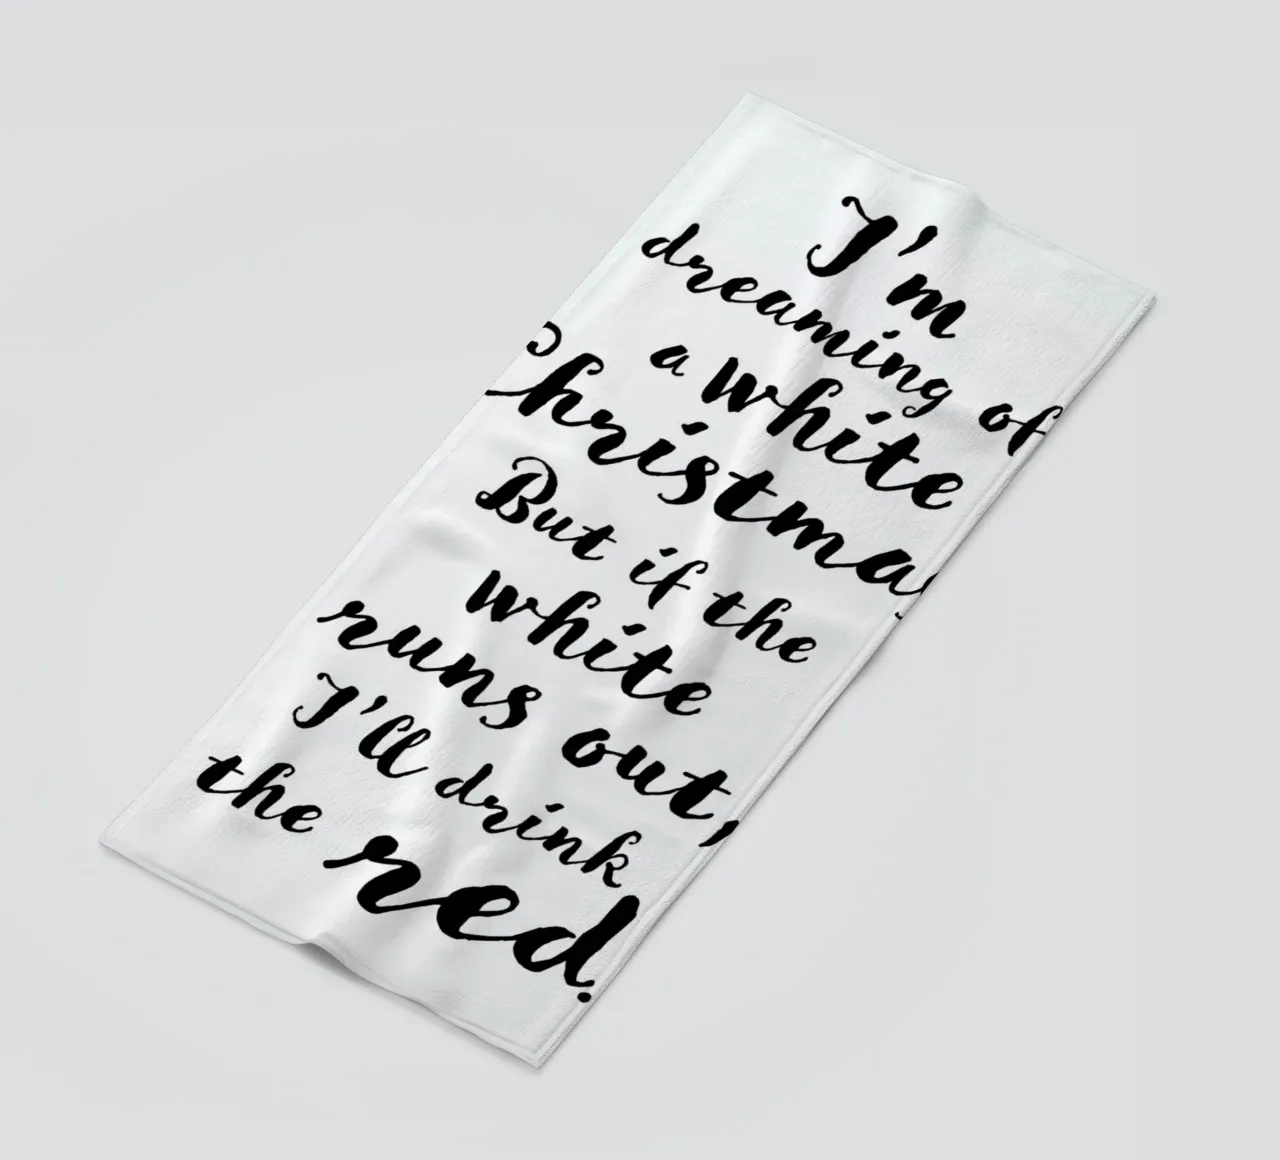 I'm
dreaming of
a white
Christmas
But if the
white
runs out,
I'll drink
the red.